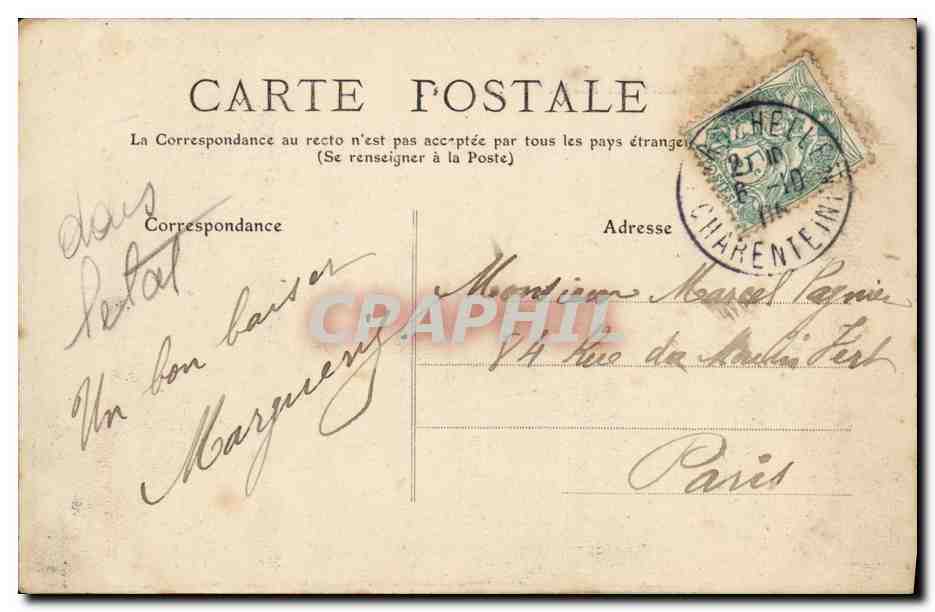 CARTE POSTALE
La Correspondance au recto n'est pas acceptée par tous les pays étrange
(Se renseigner à la Poste)
dans
l'etat
Correspondance
Adresse
Un bon baiser
Marguerite
Monsieur Marcel Pagnier
84 Rue du Moulin Vert
Paris
HELLE
6 -10
CHARENTE INFRE
CPAPHIL